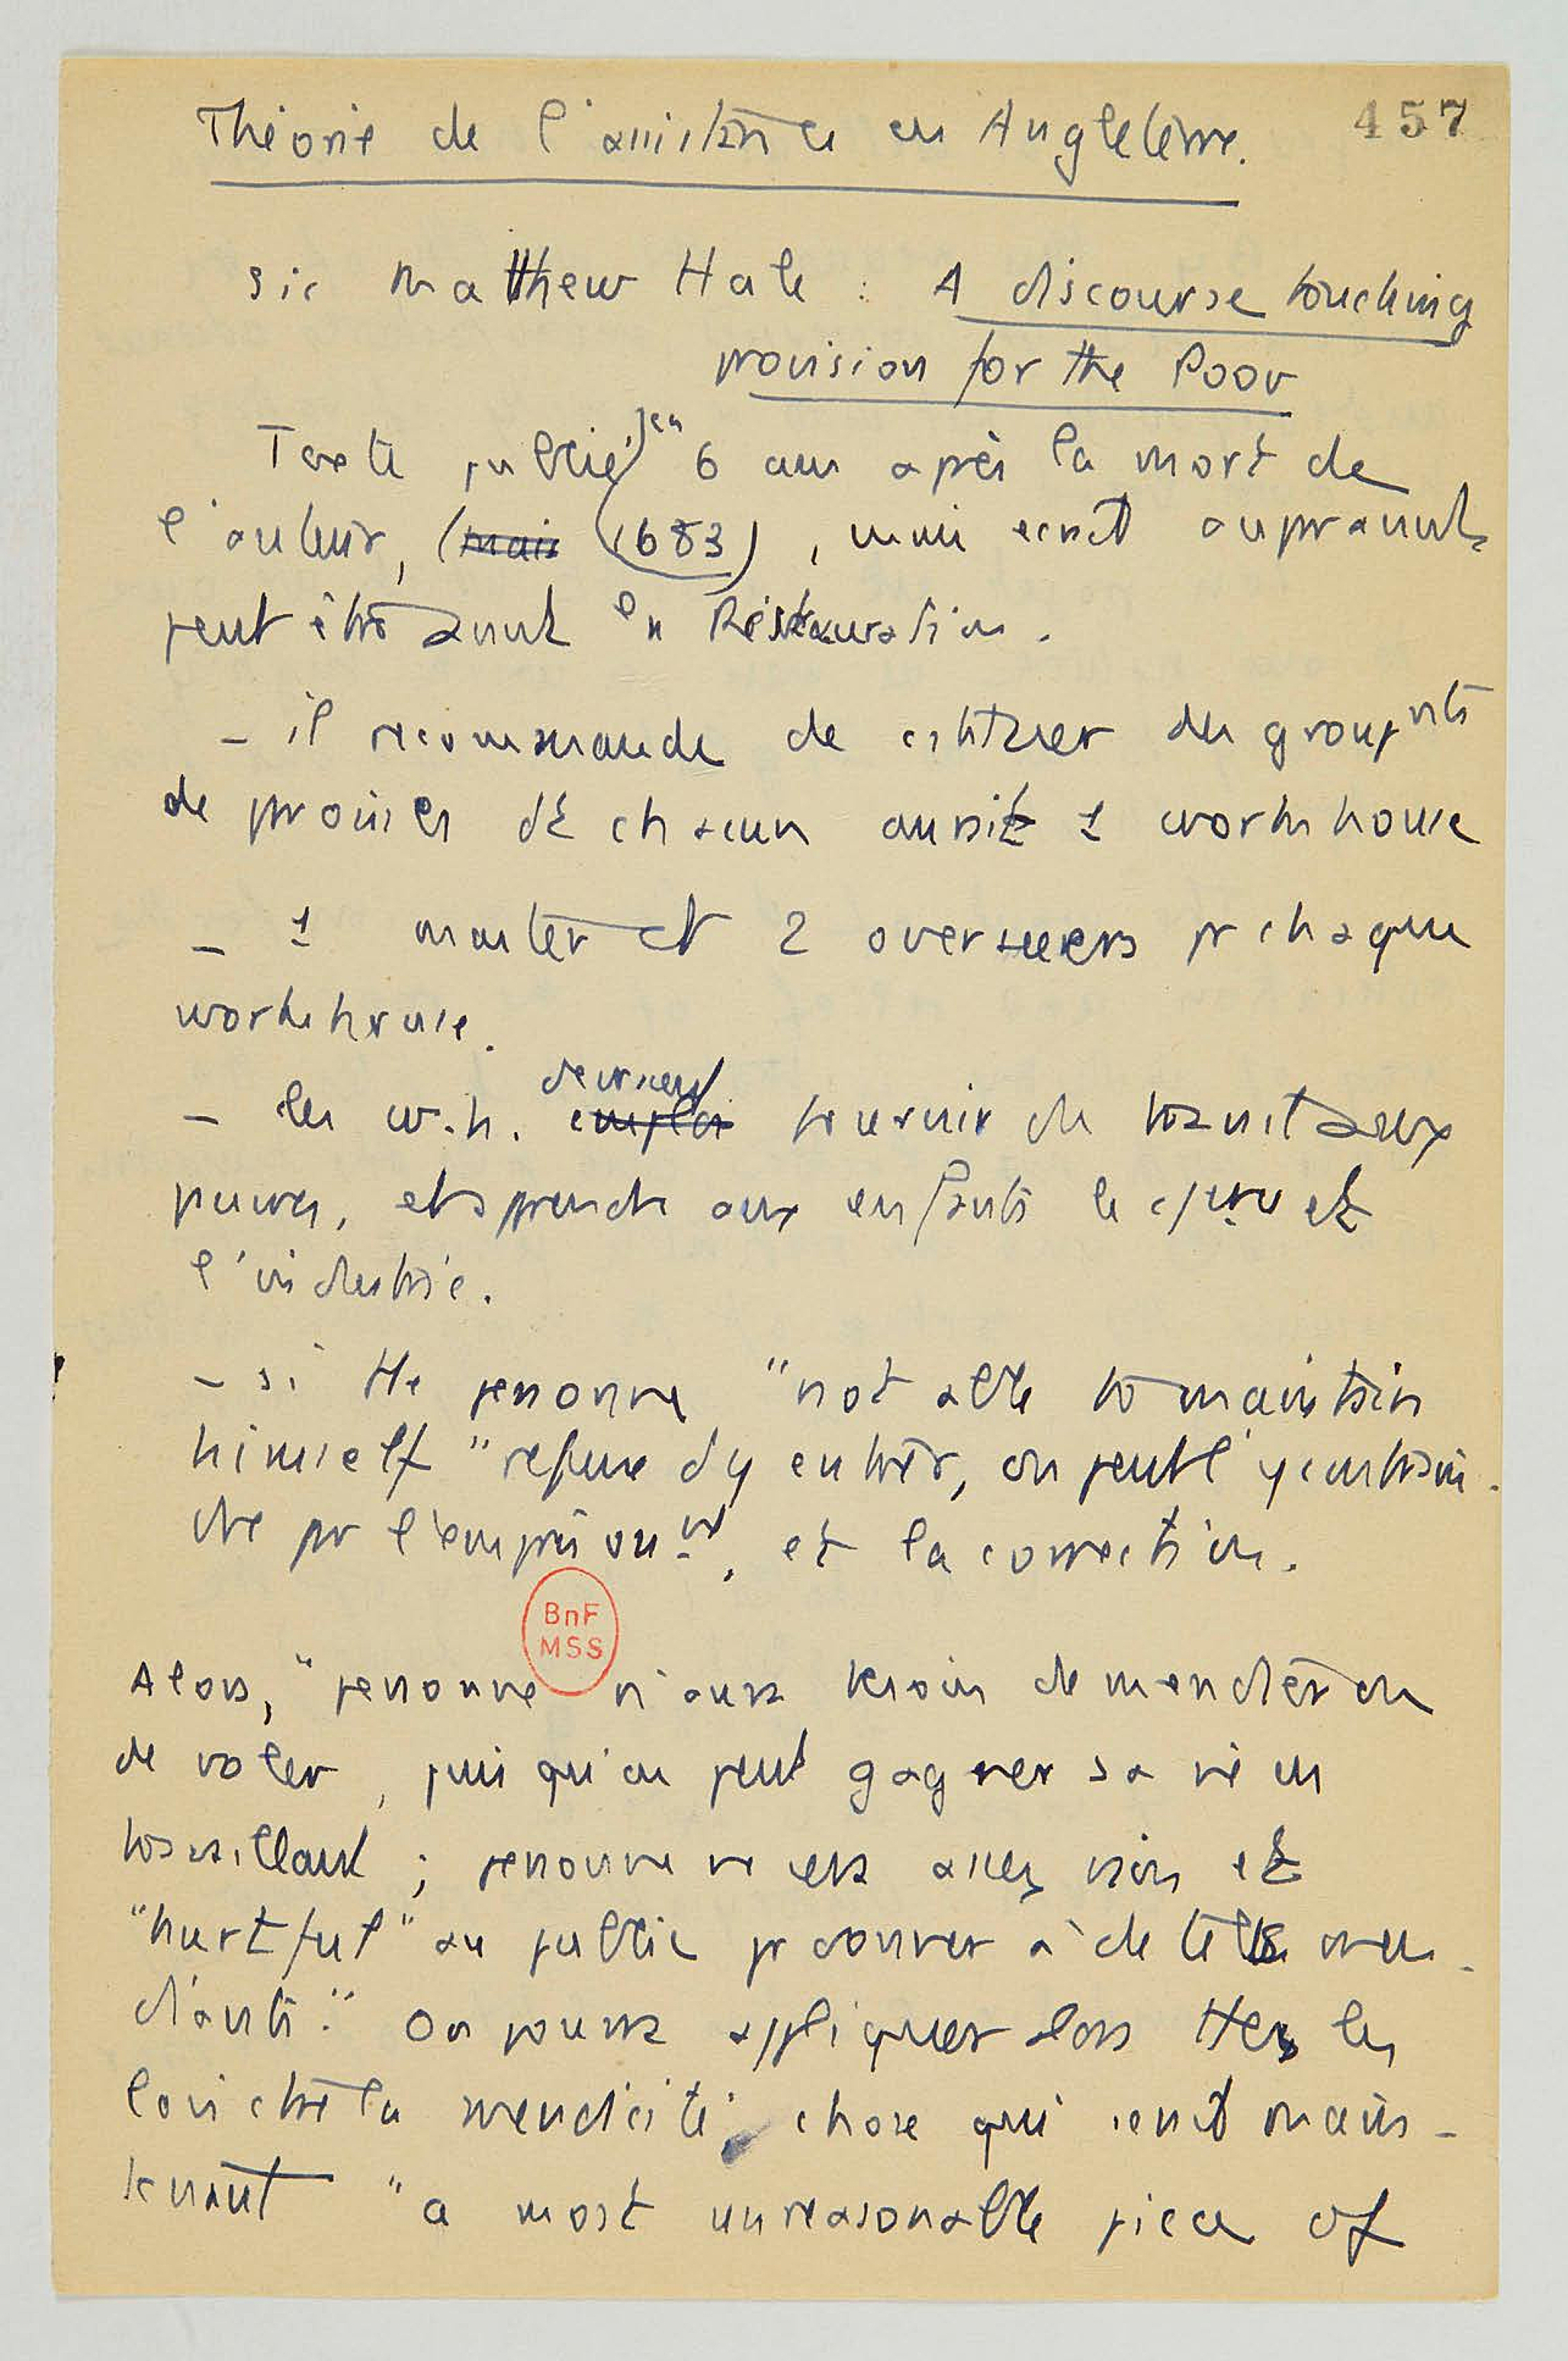 Théorie de l'assistance en Angleterre.
457
Sir Matthew Hale : A discourse touching
provision for the Poor
Texte publié en 6 ans après la mort de
l'auteur, (mais (1683), mais écrit auparavant,
peut être avant la Restauration.
- il recommande de des groupmts
de paroisses dt chacun aurait 1 workhouse
- 1 master et 2 overseers pr chaque
workhouse.
- les w.h. emploi devraient fournir du travail aux
pauvres, et apprendre aux enfants le et
l'industrie.
- si tte personne "not able to maintain
himself" refuse d'y entrer, on peut l'y contrain-
dre pr l'emprisonnt, et la correction.
BnF
MSS
Alors, "personne n'aura besoin de mendier ou
de voler, puisqu'on peut gagner sa vie en
travaillant ; personne ne sera assez vain et
"hurtful" au public pr donner à de tels men-
diants." On pourra appliquer alors ttes les
lois ctre la mendicité, chose qui serait main-
tenant "a most unreasonable piece of